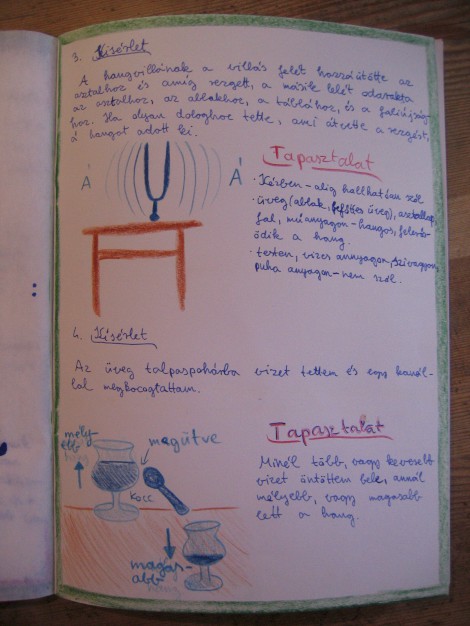 3. Kísérlet
A hangvillának a villás felét hozzáütötte az
asztalhoz és amíg rezgett, a másik felét odarakta
az asztalhoz, az ablakhoz, a táblához, és a faliújság-
hoz. Ha olyan dologhoz tette, ami átvette a rezgést,
á hangot adott ki.
Á
Á
Tapasztalat
· Kézben - alig hallhatóan szól
· üveg (ablak, befőttes üveg), asztallap,
fal, műanyagon - hangos, felerő-
södik a hang.
· testen, vizes anyagon, szivacson,
puha anyagon - nem szól.
4. Kísérlet
Az üveg talpaspohárba vizet tettem és egy kanál-
lal megkocogtattam.
Tapasztalat
mély-
ebb
hang
megütve
Kocc
Minél több, vagy kevesebb
vizet öntöttem bele, annál
mélyebb, vagy magasabb
lett a hang.
magas-
abb
hang